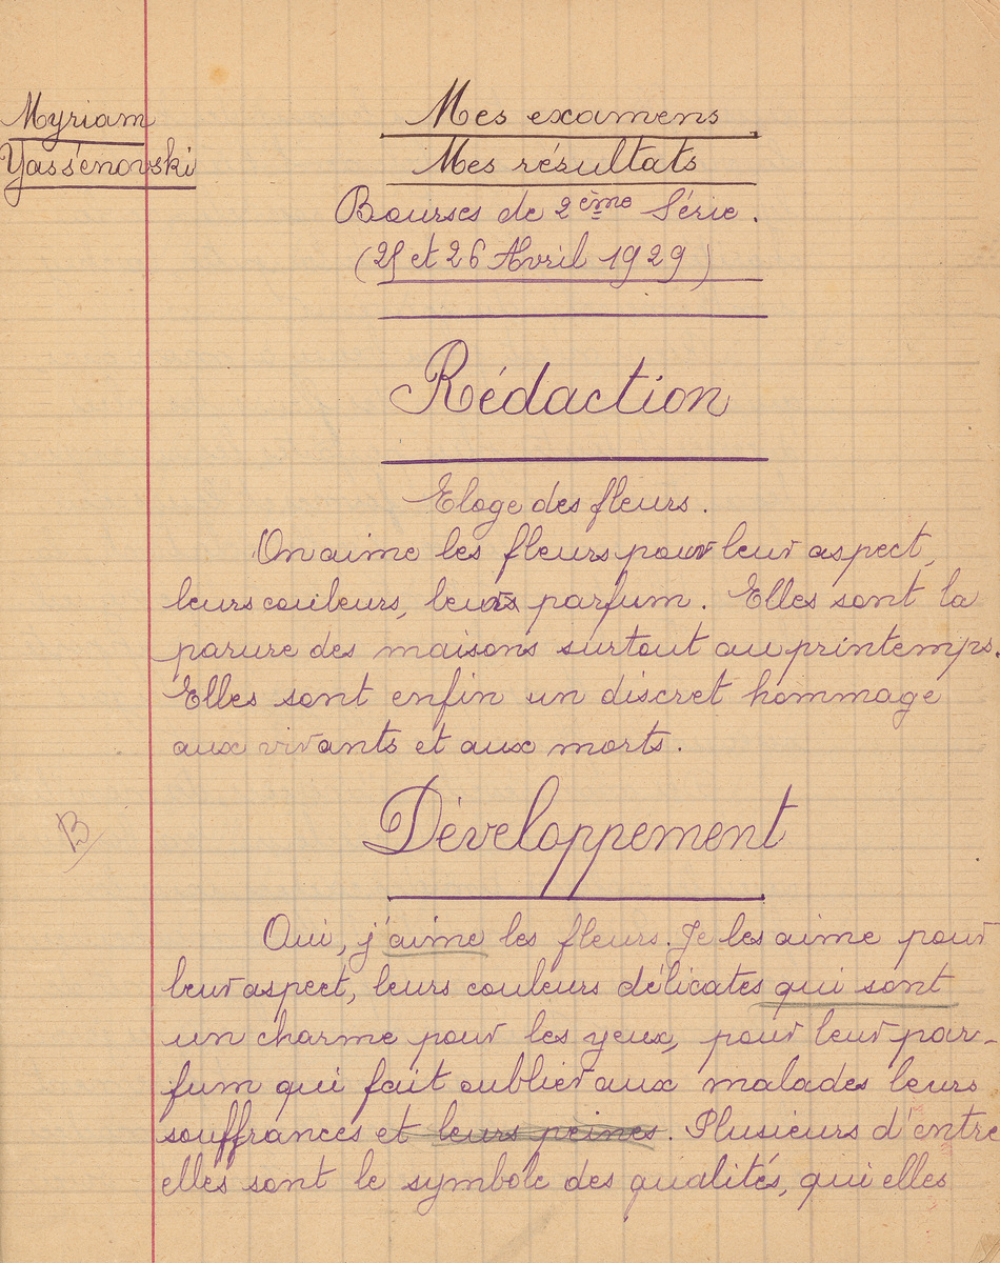 Myriam
Yassénovski
Mes examens
Mes résultats
Bourses de 2ème Série.
(25 et 26 Avril 1929)
Rédaction
Eloge des fleurs.
On aime les fleurs pour leur aspect,
leurs couleurs, leurs parfum. Elles sont la
parure des maisons surtout au printemps.
Elles sont enfin un discret hommage
aux vivants et aux morts.
B
Développement
Oui, j'aime les fleurs. Je les aime pour
leur aspect, leurs couleurs délicates qui sont
un charme pour les yeux, pour leur par-
fum qui fait oublier aux malades leurs
souffrances et leurs peines. Plusieurs d'entre
elles sont le symbole des qualités, qui elles